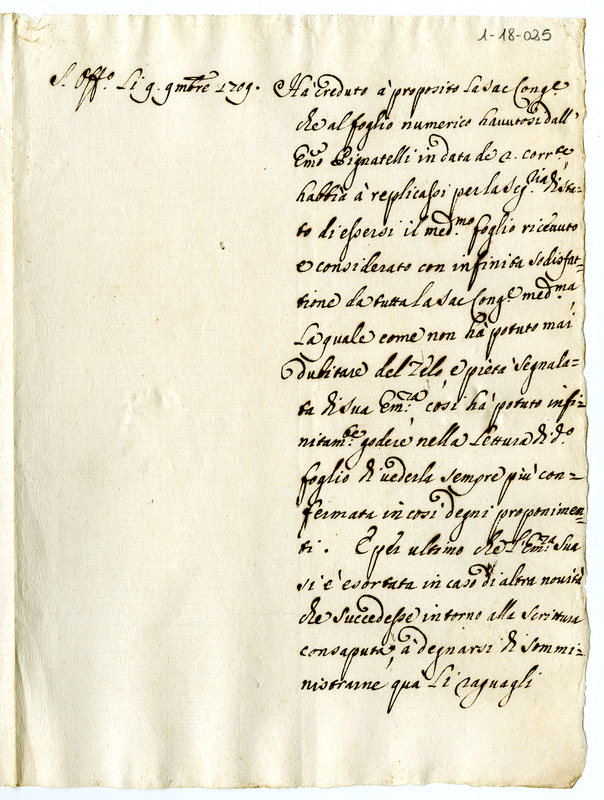 1-18-025
S. Off.º Li 9. 9mbre 1709.
Hà creduto à proposito la Sac Cong.e
che al foglio numerico havutosi dall'
Em.o Pignatelli in data de 2. corr.te
habbia à replicarsi per la Seg.ria di Sta=
to di essersi il med.mo foglio ricevuto
e considerato con infinita sodisfat=
tione da tutta la Sac Cong.e med.ma
La quale come non hà potuto mai
dubitare del Zelo e pietà segnala=
ta di Sua Em.za così hà potuto infi=
nitam.te godere nella Lettura di d.º
foglio di vederla sempre più con=
fermata in così degni proponimen=
ti. E per ultimo che l'Em.za Sua
si è esortata in caso di altra novità
che succedesse intorno alla scrittura
consaputa, à degnarsi di sommi=
nistrarne quà Li raguagli